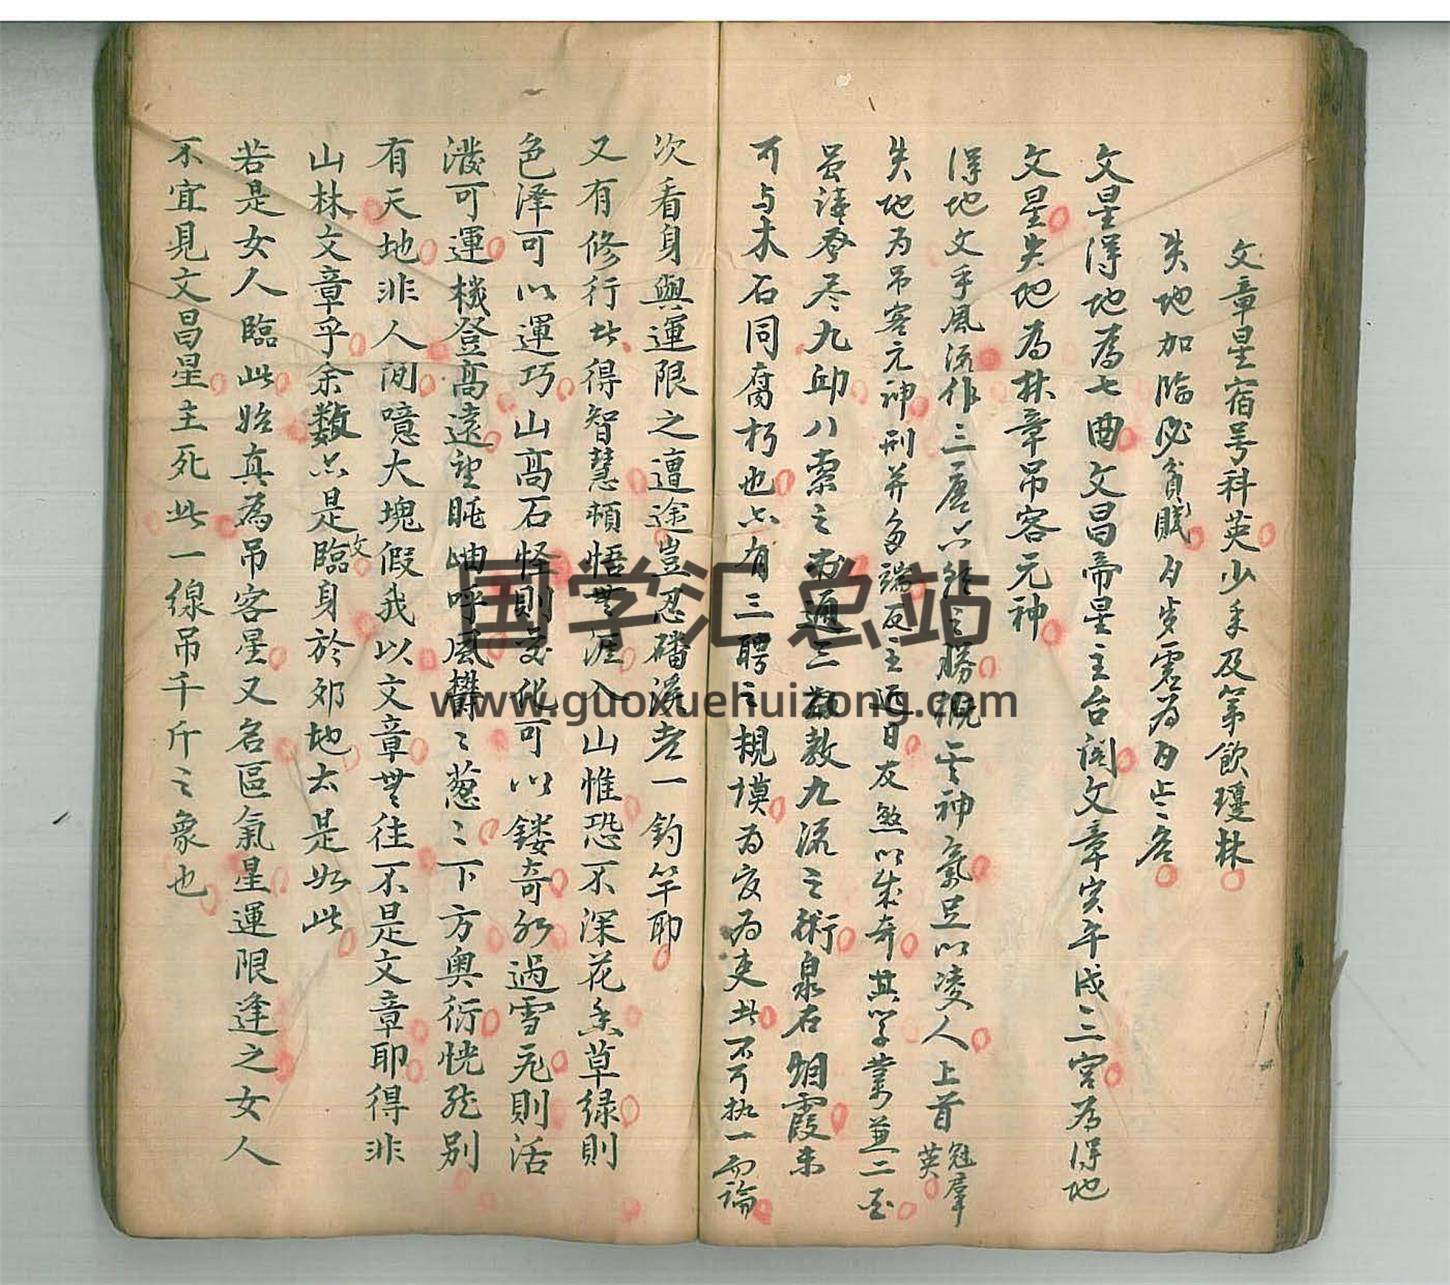 文章星宿号科英少年及第飲瓊林
失地加臨必貧賤
文星得地為七曲文昌帝星主台閣文章寅午戌三宮為得地
文星失地為林章吊客元神
得地文手風流作三唐六經之勝概 神氣足以凌人上首冠群英
失地为吊客元神刑并多端反主 日友煞以 奇其学業兼二
虽读尽九邱八索之 通三 教九流之術泉石烟霞未
可与木石同腐朽也 有三聘之規模为 为吏此不可执一而論
次看身與運限之遭途豈忍磻溪老一釣竿耶
又有修行此得智慧頓悟世涯入山惟恐不深花香草绿則
色澤可以運巧山高石怪則 可以鏤奇 過雪 則活
潑可運機登高遠望 岫呼風欝〻葱〻下方奥衍恍 别
有天地非人间噫大塊假我以文章世往不是文章耶得非
山林文章乎余数 是臨文身於郊地 是此
若是女人臨此始真為吊客星又名區氣星運限逢之女人
不宜見文昌星主死此一線吊千斤之象也
国学汇总站
www.guoxuehuizong.com